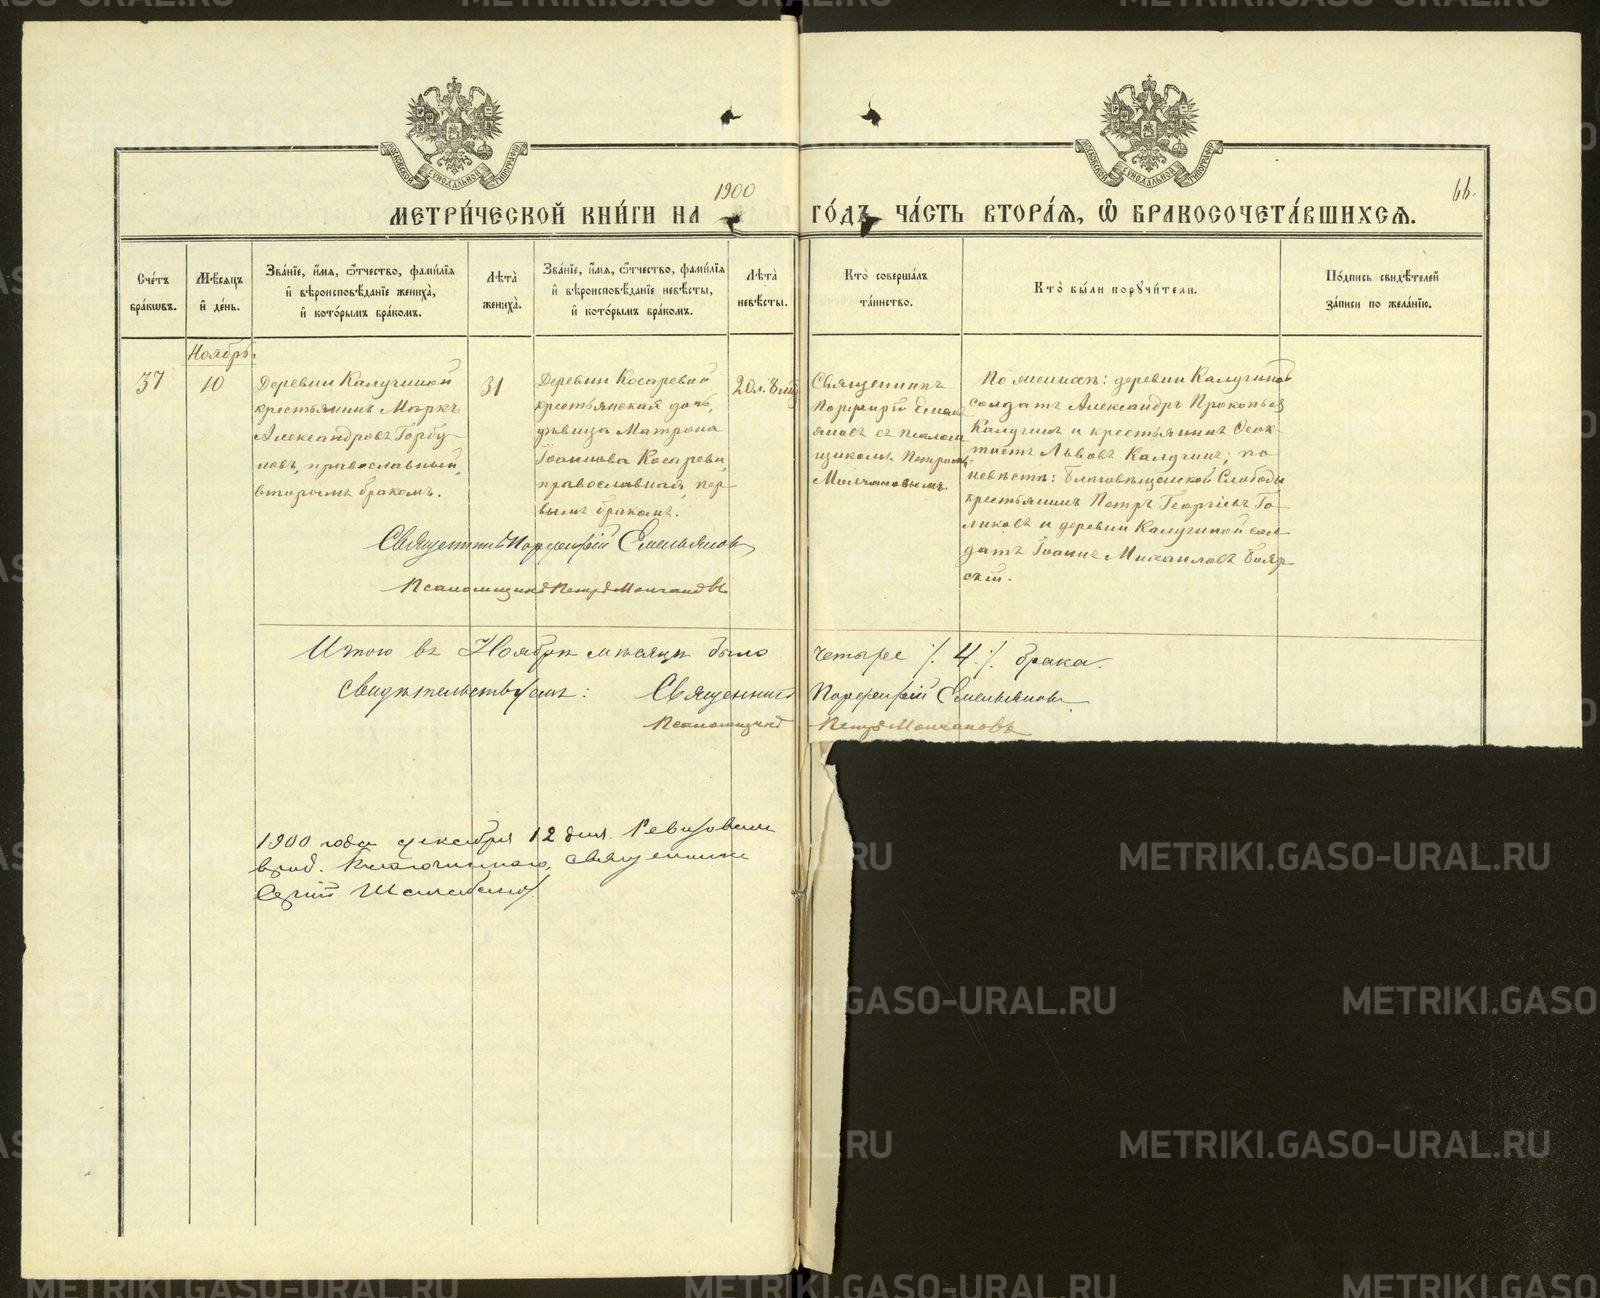 МЕТРИ́ЧЕСКОЙ КНИ́ГИ НА 1900 ГО́ДЪ ЧА́СТЬ ВТОРА́Я, Ѽ БРАКОСОЧЕТА́ВШИХСЯ.
66.
Сче́тъ бра́кѡвъ.
Мѣ́сяцъ и҆ де́нь.
Зва́нїе, и҆́мя, ѻ҆́тчество, фами́лїя и҆ вѣроисповѣ́данїе жениха̀, и҆ кото́рымъ бра́комъ.
Лѣта̀ жениха̀.
Зва́нїе, и҆́мя, ѻ҆́тчество, фами́лїя и҆ вѣроисповѣ́данїе невѣ́сты, и҆ кото́рымъ бра́комъ.
Лѣта̀ невѣ́сты.
Кто̀ соверша́лъ та́инство.
Кто̀ бы́ли поручи́тели.
По́дпись свидѣ́телей за́писи по жела́нїю.
Ноябрь.
37
10
Деревни Калугиной
крестьянинъ Маркъ
Александровъ Горбу-
новъ, православный,
вторымъ бракомъ.
31
Деревни Косаревой
крестьянская дочь,
дѣвица Матрона
Іоаннова Косарева,
православная, пер-
вымъ бракомъ.
20 л. 8 м.
Священникъ
Порфирій Емель-
яновъ съ псалом-
щикомъ Петромъ
Молчановымъ.
По женихѣ: деревни Калугиной
солдатъ Александръ Прокопьевъ
Калугинъ и крестьянинъ Ѳеок-
тистъ Львовъ Калугинъ; по
невѣстѣ: Благовѣщенской Слободы
крестьянинъ Петръ Георгіевъ Го-
ликовъ и деревни Калугиной сол-
датъ Іоаннъ Михаиловъ Бояр-
скій.
Священникъ Порфирій Емельяновъ
Псаломщикъ Петръ Молчановъ
Итого въ Ноябрѣ мѣсяцѣ было четыре ./. 4 ./. брака.
Свидѣтельствуемъ: Священникъ Порфирій Емельяновъ
Псаломщикъ Петръ Молчановъ
1900 года декабря 12 дня. Ревизовалъ
Благочиннаго, священникъ
Сергій
METRIKI.GASO-URAL.RU